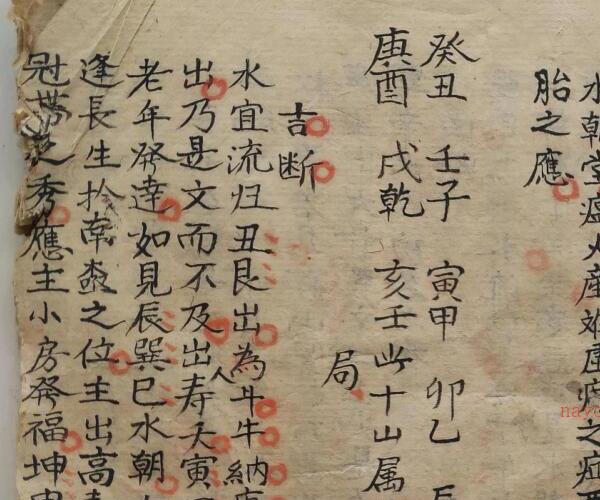 水朝堂瘟火産難虛癆之症
胎之應
癸丑 壬子 寅甲 卯乙
庚酉 戌乾 亥壬此十山属
局
吉断
水宜流归丑艮出為斗牛納
出乃是文而不及出人寿夭寅
老年發達如見辰巽巳水朝
逢長生於南離之位主出高
冠帶之秀應主小房發福坤